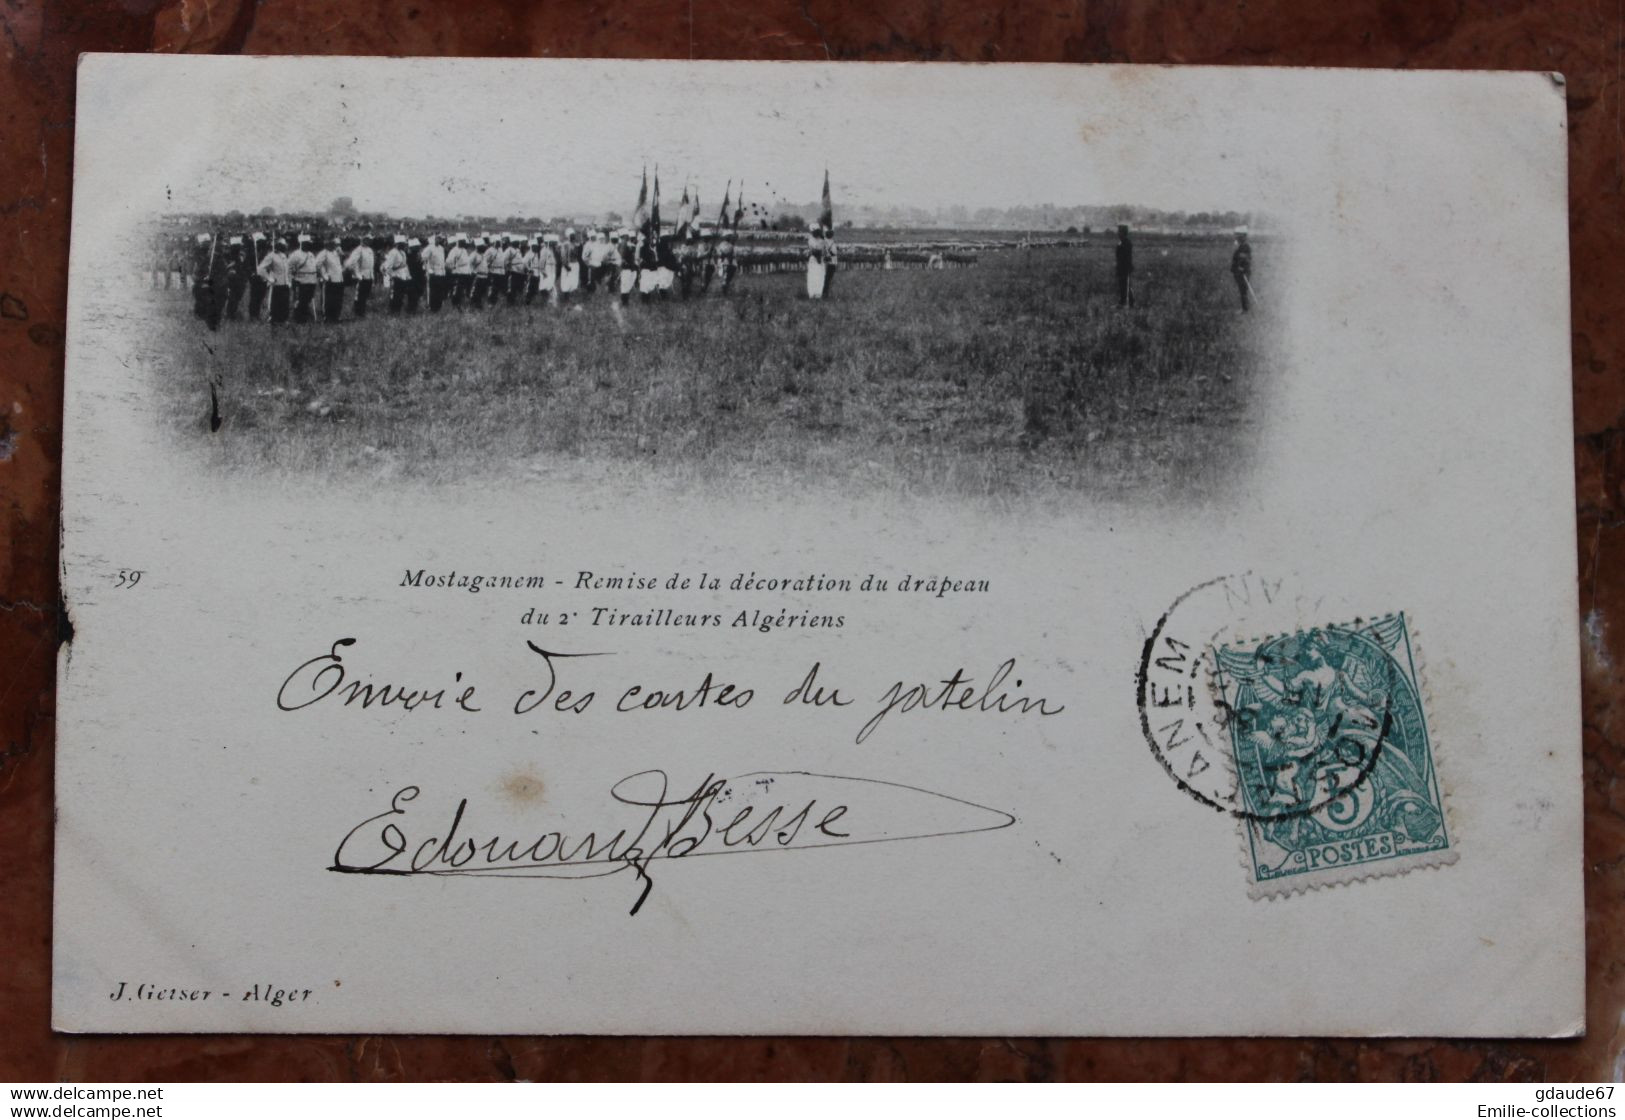 59
Mostaganem - Remise de la décoration du drapeau
du 2e Tirailleurs Algériens
Envoie des cartes du patelin
Edouard Besse
MOSTAGANEM
ORAN
5
POSTES
J. Geiser - Alger
www.delcampe.net
gdaude67
www.delcampe.net
Emilie-collections